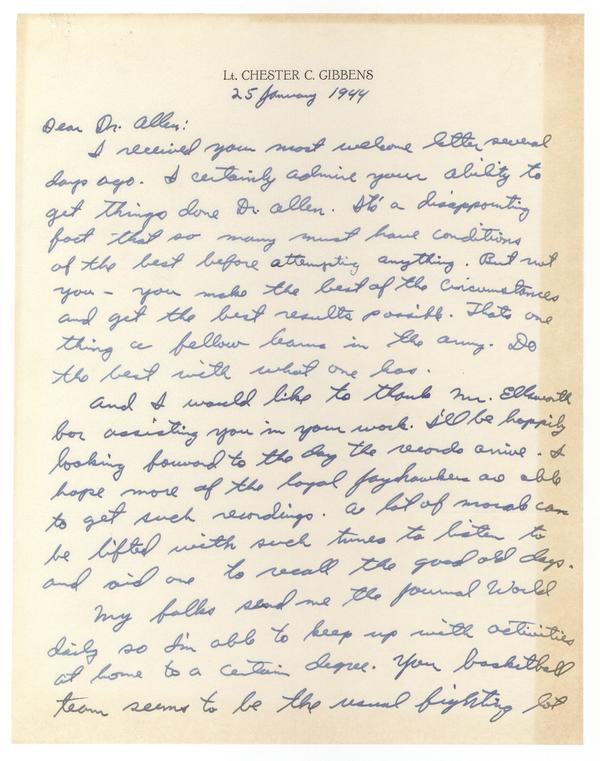 Lt. CHESTER C. GIBBENS
25 January 1944
Dear Dr. Allen:
I received your most welcome letter several
days ago. I certainly admire your ability to
get things done Dr. Allen. It's a disappointing
fact that so many must have conditions
of the best before attempting anything. But not
you - you make the best of the circumstances
and get the best results possible. Thats one
thing a fellow learns in the army. Do
the best with what one has.
And I would like to thank Mr. Ellsworth
for assisting you in your work. I'll be happily
looking forward to the day the records arrive. I
hope more of the loyal Jayhawkers are able
to get such recordings. A lot of morale can
be lifted with such tunes to listen to
and aid one to recall the good old days.
My folks send me the Journal World
daily so I'm able to keep up with activities
at home to a certain degree. Your basketball
team seems to be the usual fighting lot